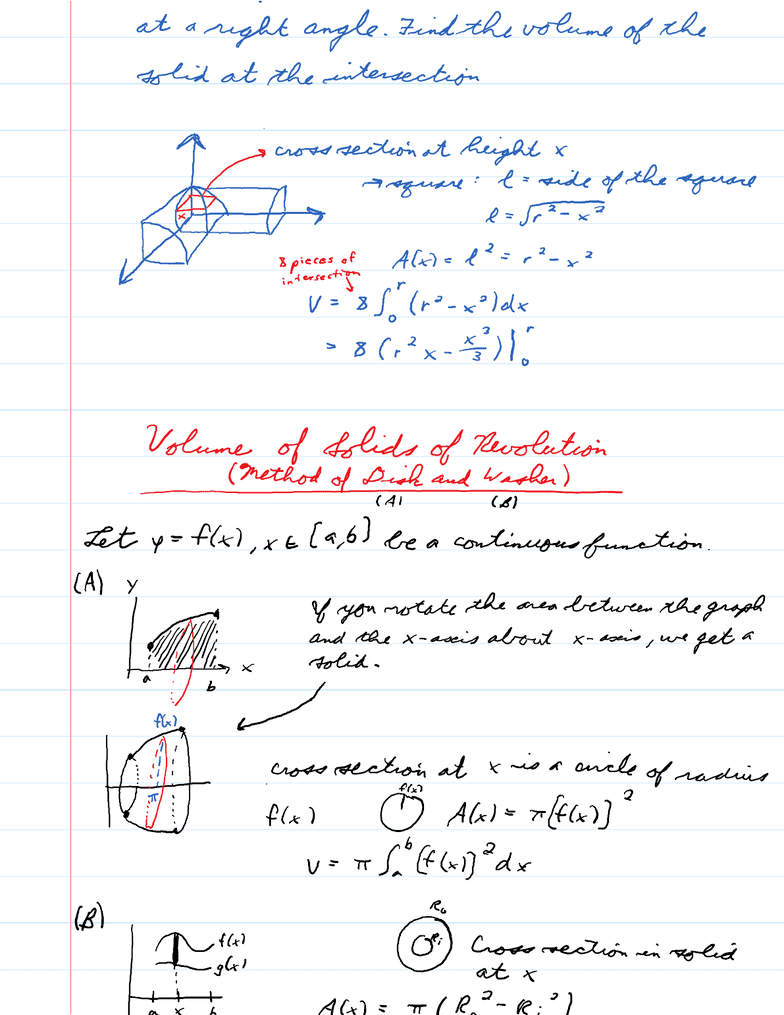 at a right angle. Find the volume of the
solid at the intersection
cross section at height x
→ square: l = side of the square
l = √(r² - x²)
x
8 pieces of
intersection
A(x) = l² = r² - x²
V = 8 ∫₀ʳ (r² - x²) dx
= 8 (r² x - x³/3) |₀ʳ
Volume of Solids of Revolution
(Method of Disk and Washer)
(A) (B)
Let y = f(x), x ∈ [a,b] be a continuous function.
(A) y
If you rotate the area between the graph
and the x-axis about x-axis, we get a
solid.
a b x
f(x)
cross section at x is a circle of radius
π
f(x) f(x) A(x) = π[f(x)]²
V = π ∫ₐᵇ [f(x)]² dx
(B)
f(x)
g(x)
R₀
Rᵢ
Cross section in solid
at x
a x b
A(x) = π (R₀² - Rᵢ²)